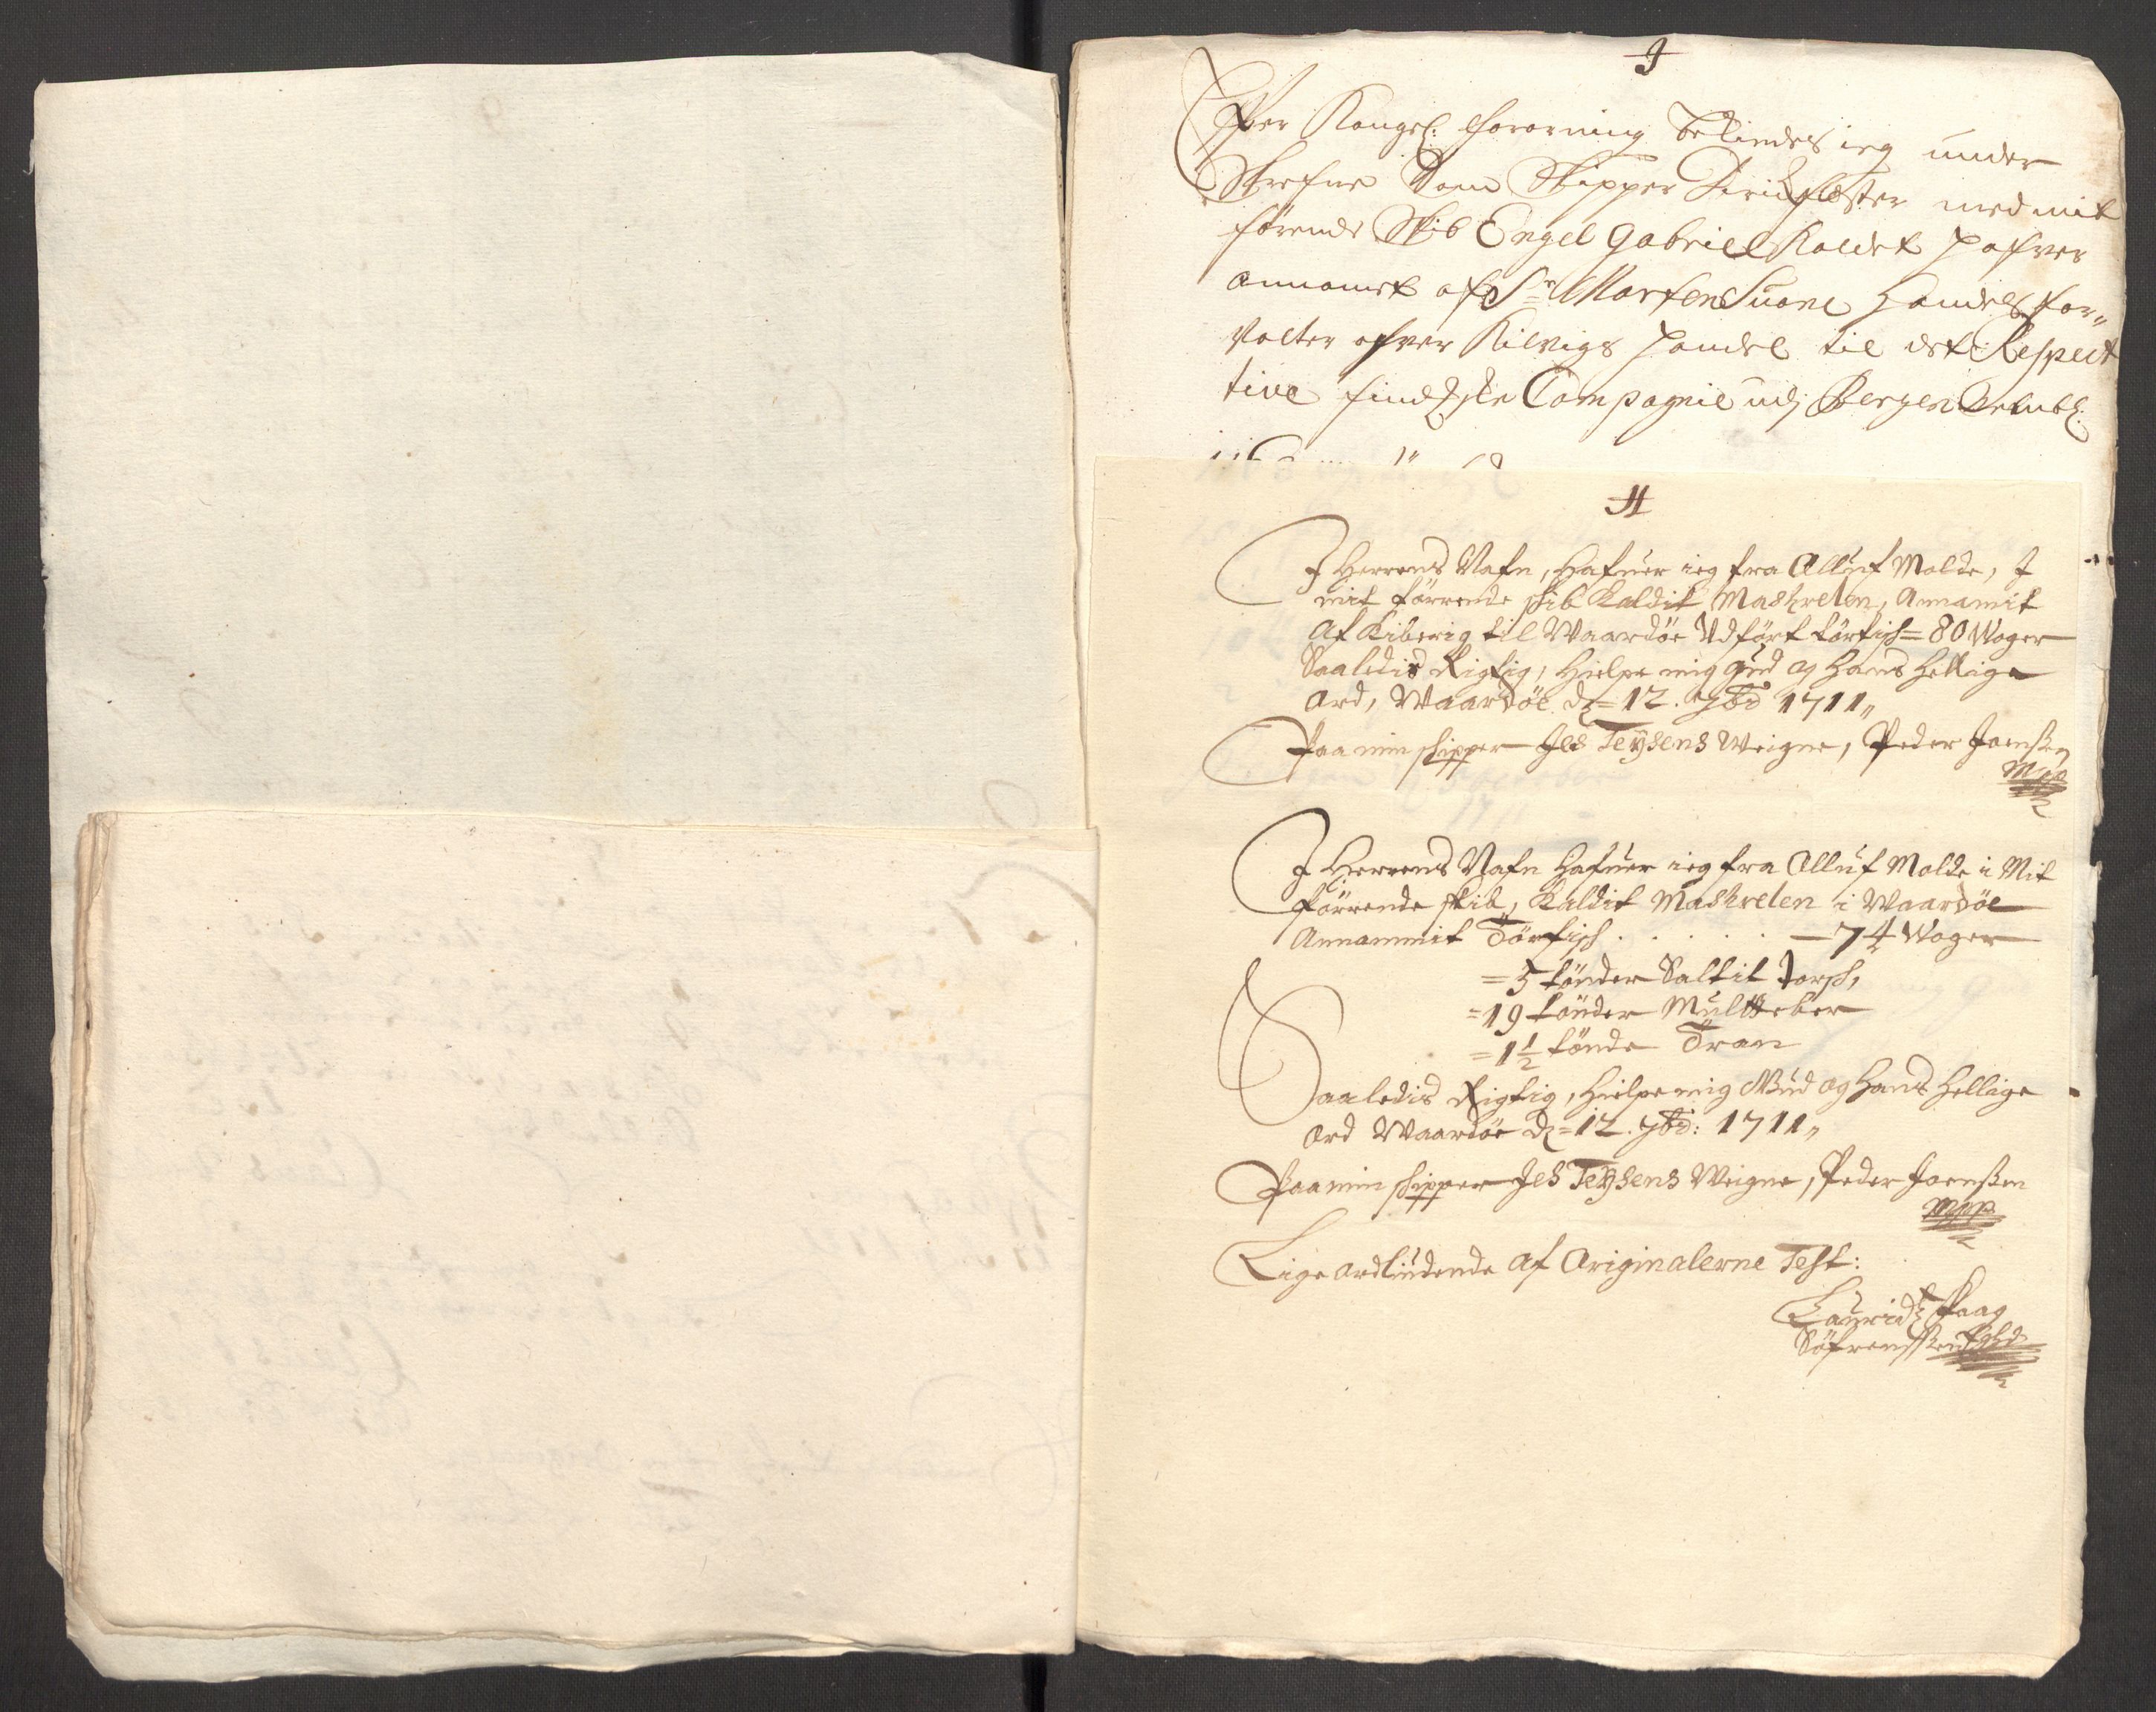 I
Efter Kongel: forordning bekiendes ieg under
Skrefne som Skipper med mit
førende Skib Engel Gabriel Kaldet hafver
annamet af Sr Morten Suane Handels for„
valter ofver Kilvigs Handel til det Respect
tive Compagnie udj Bergen
H
I Herrens Nafn, Hafuer ieg fra Alluf Molde, I
mit førrende skib Kaldit Maskrelen, Annamit
Af Kiberig til Waardøe Udført törfisch = 80 Woger
Saaledis Rigtig, Hielpe mig Gud og Hans Hellige
Ord, Waardöe d = 12. 7br 1711„
Paa min skipper Jes Teÿsens Weigne, Peder Joenßen
Mpp
I Herrens Nafn Hafuer ieg fra Alluf Molde i Mit
förrende skib, Kaldit Maskrelen i Waardöe
Annammit Törfisch . . . . . — 74 Woger
= 5 tönder Saltit torsch,
= 19 tönder Multteber
= 1½ tönde Tran
Saaledis Rigtig, Hielpe mig Gud og Hans Hellige
Ord Waardöe d = 12. 7br: 1711„
Paa min skipper Jes Teÿsens Weigne, Peder Joenßen
Mpp
Lige ordliudende af Originalerne Test:
Lauridz
Söfrenßen